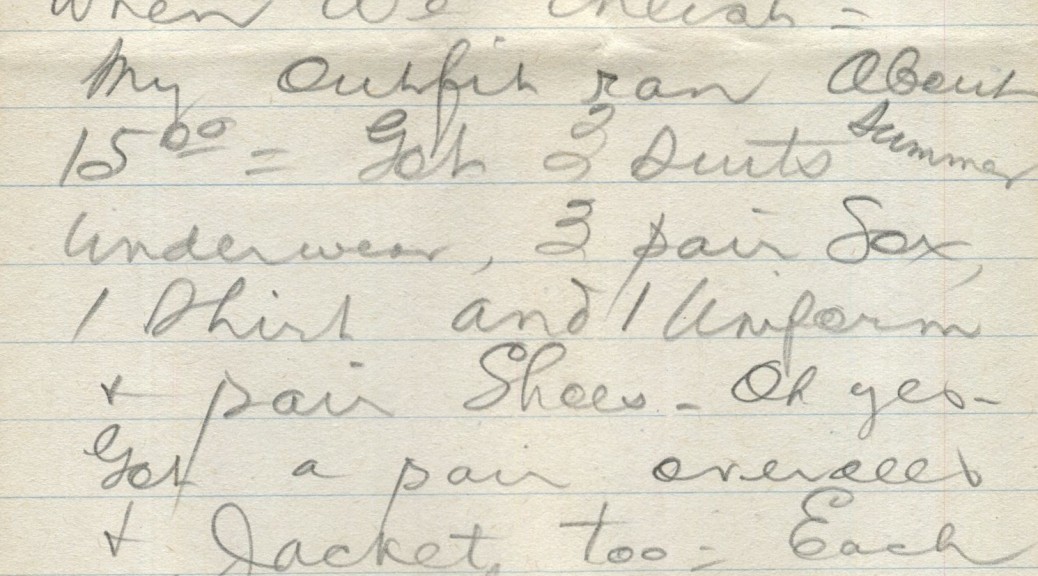 when we
My Outfit ran About
15 00 = Got 3 Suits Summer
Underwear, 3 pair Sox,
1 Shirt and 1 Uniform
+ pair Shoes - Oh yes -
Got a pair overalls
+ Jacket too = Each